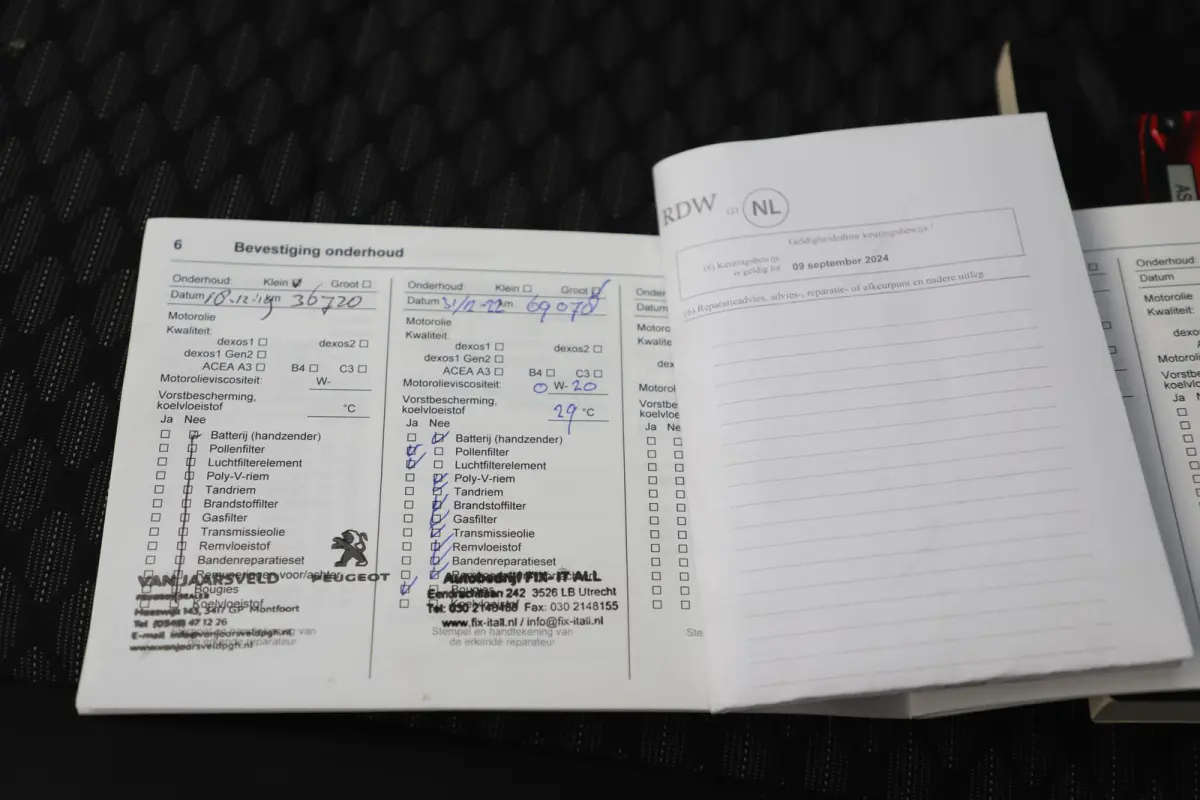 6 Bevestiging onderhoud
Onderhoud: Klein Groot
Datum 10-12-19 km 36720
Motorolie
Kwaliteit:
dexos1 dexos2
dexos1 Gen2
ACEA A3 B4 C3
Motorolieviscositeit: W-
Vorstbescherming,
koelvloeistof °C
Ja Nee
Batterij (handzender)
Pollenfilter
Luchtfilterelement
Poly-V-riem
Tandriem
Brandstoffilter
Gasfilter
Transmissieolie
Remvloeistof
Bandenreparatieset
Bougies
Koelvloeistof
VAN JAARSVELD PEUGEOT
3417 GP Montfoort
47 12 26
E-mail info@vanjaarsveldpgh.nl
www.vanjaarsveldpgh.nl
Onderhoud: Klein Groot
Datum 31/12-22 km 69078
Motorolie
Kwaliteit:
dexos1 dexos2
dexos1 Gen2
ACEA A3 B4 C3
Motorolieviscositeit: 0 W- 20
Vorstbescherming,
koelvloeistof 29 °C
Ja Nee
Batterij (handzender)
Pollenfilter
Luchtfilterelement
Poly-V-riem
Tandriem
Brandstoffilter
Gasfilter
Transmissieolie
Remvloeistof
Bandenreparatieset
Autobedrijf FIX-IT ALL
Eendrachtlaan 242 3526 LB Utrecht
Tel: 030 2148488 Fax: 030 2148155
www.fix-itall.nl / info@fix-itall.nl
Stempel en handtekening van
de erkende reparateur
Datum
Ja Ne
RDW (2) NL
Geldigheidsduur keuringsbewijs
(8) Keuringsbewijs
is geldig tot 09 september 2024
(6) Reparatieadvies, advies-, reparatie- of afkeurpunten en nadere uitleg
Onderhoud:
Datum
Motorolie
Kwaliteit:
Ja